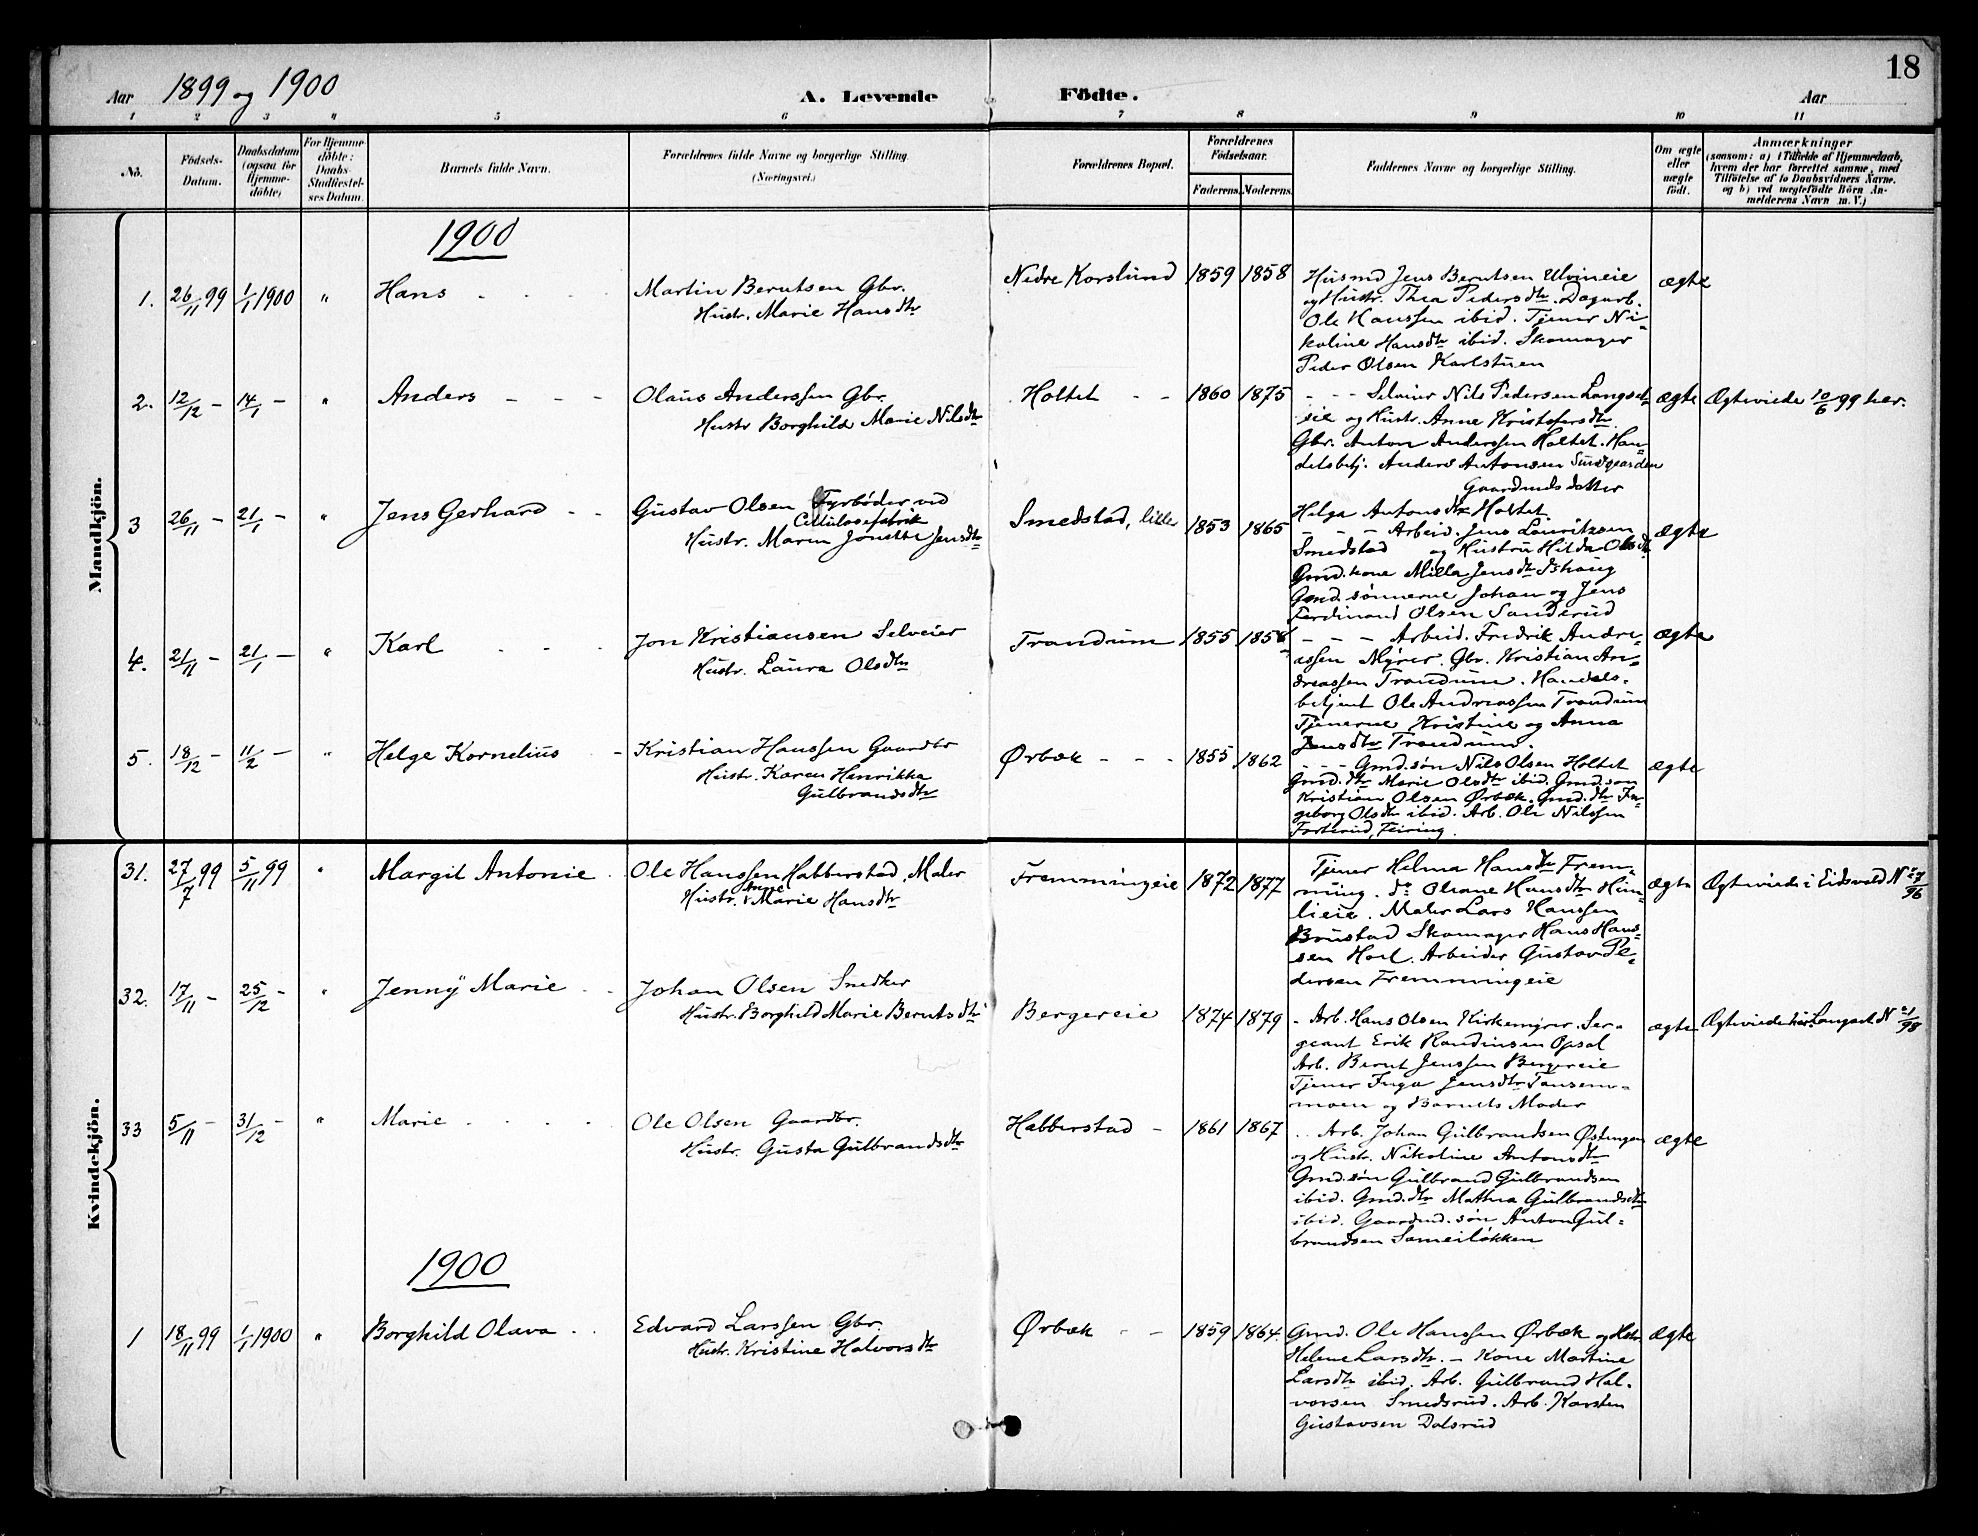 18
Aar 1899 og 1900 A. Levende Födte. Aar
1 2 3 4 5 6 7 8 9 10 11
No.
Födsels-
Datum.
Daabsdatum
(ogsaa for
Hjemme-
döbte)
For Hjemme-
döbte:
Daabs-
Stadfæstel-
ses Datum.
Barnets fulde Navn.
Forældrenes fulde Navne og borgerlige Stilling
(Næringsvei.)
Forældrenes Bopæl.
Forældrenes
Födselsaar.
Faderens. Moderens.
Faddernes Navne og borgerlige Stilling.
Om ægte
eller
uægte
födt.
Anmærkninger
(saasom: a) i Tilfælde af Hjemmedaab,
hvem der har forrettet samme, med
Tilföielse af to Daabsvidners Navne.
og b) ved uægtefödte Börn An-
melderens Navn m. V.)
Mandkjön.
1900
1. 26/11 99 1/1 1900 " Hans - - - -
Martin Berntsen Gbr.
Hustr. Marie Hansdtr
Nedre Korslund 1859 1858
Husmd Jens Berntsen Ulvineie
og Hustr. Thea Pedersdtr. Dagarb.
Ole Hanssen ibid. Tjener Ni-
koline Hansdtr ibid. Skomager
Peder Olsen Karlstuen
ægte
2. 12/12 - 14/1 - " Anders - - -
Olaus Anderssen Gbr.
Hustr Borghild Marie Nilsdtr
Holtet - - 1860 1875
- - - Selveier Nils Pedersen Langset-
eie og Hustr. Anne Kristofersdtr.
Gbr. Anton Anderssen Holtet. Han-
delsbetj. Anders Antonsen Sundgaarden
Gaardmds datter
Helga Antonsdtr Holtet
ægte Ægteviede 10/6 99 her.
3 26/11 - 21/1 - " Jens Gerhard - -
Gustav Olsen Fyrbøder ved
Cellulosefabrik
Hustr. Maren Jonette Jensdtr
Smedstad, lille 1853 1865
- - - Arbeid. Jens Lauritzsen
Smedstad og Hustru Hilda Olsdtr.
Gmd. kone Milla Jensdtr
Gmd. sønnerne Johan og Jens
Ferdinand Olsen Sanderud
ægte
4. 21/11 - 21/1 - " Karl - - -
Jon Kristiansen Selveier
Hustr. Laura Olsdtr
Trandum 1855 1858
- - - Arbeid. Fredrik Andre-
assen Myrer. Gbr. Kristian An-
dreassen Trandum. Handels-
betjent Ole Andreassen Trandum
Tjenerne Kristine og Anna
Jensdtr Trandum.
ægte
5. 18/12 - 11/2 - " Helge Kornelius -
Kristian Hanssen Gaardbr
Hustr. Karen Henrikka
Gulbrandsdtr
Ørbæk - - - 1855 1862
- - - Gmd. søn Nils Olsen Holtet
Gmd. dtr Marie Olsdtr ibid. Gmd. søn
Kristian Olsen Ørbæk. Gmd. dtr In-
geborg Olsdtr ibid. Arb. Ole Nilssen
Feiring.
ægte
Kvindekjön.
31. 27/7 99 5/11 99 " Margit Antonie
Ole Hanssen Habberstad, Maler
Hustr. Anne Marie Hansdtr
Fremmingeie 1872 1877
Tjener Helma Hansdtr Frem-
ming. do Oliane Hansdtr Him-
lieie. Maler Lars Hanssen
Brustad Skomager Hans Hans-
sen Hol. Arbeider Gustav Pe-
dersen Fremmingeie
ægte Ægteviede i Eidsvold N 27/96
32. 17/11 - 25/12 - " Jenny Marie - -
Johan Olsen Snedker
Hustr. Borghild Marie Berntsdtr
Bergereie 1874 1879
- Arb. Hans Olsen Kirkemyrer. Ser-
geant Erik Opsal
Arb. Bernt Jenssen Bergereie
Tjener Inga Jensdtr
moen og Barnets Moder
ægte Ægteviede her Langset N 21/98
33 5/11 - 31/12 - " Marie - - - -
Ole Olsen Gaardbr.
Hustr. Gusta Gulbrandsdtr
Habberstad - 1861 1867
- - Arb. Johan Gulbrandsen Østengen
og Hustr. Nikoline Antonsdtr
Gmd. søn Gulbrand Gulbrandsen
ibid. Gmd. dtr Mathea Gulbrandsdtr
ibid. Gaardmd. søn Anton Gul-
brandsen Sameiløkken
ægte
1900
1 18/11 99 1/1 1900 " Borghild Olava - -
Edvard Larssen Gbr.
Hustr. Kristine Halvorsdtr
Ørbæk - - 1859 1864
Gmd. Ole Hanssen Ørbæk og Hstr.
Helene Larsdtr. - Kone Martine
Larsdtr ibid. Arb. Gulbrand Hal-
vorsen Smedsrud. Arb. Karsten
Gustavsen Dalsrud
ægte